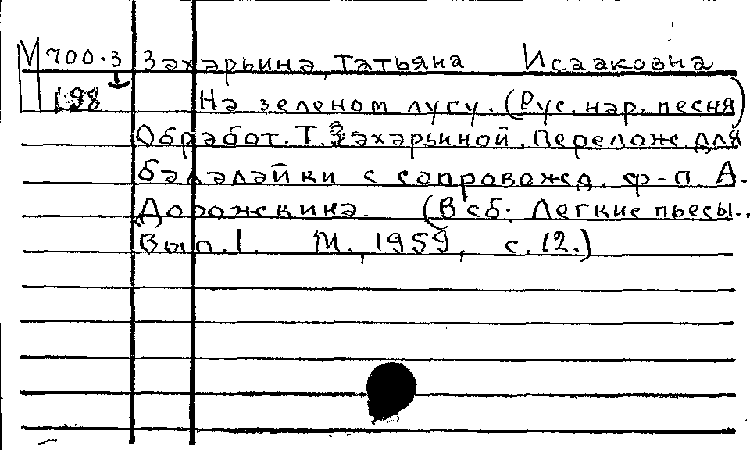 М 700.3 Захарьина, Татьяна Исааковна
1.98 На зеленом лугу. (Рус. нар. песня)
Обработ. Т. Захарьиной. Перелож. для
балалайки с сопровожд. ф-п. А.
Дорожкина. (В сб: Легкие пьесы.
Вып. 1. М., 1959, с. 12.)